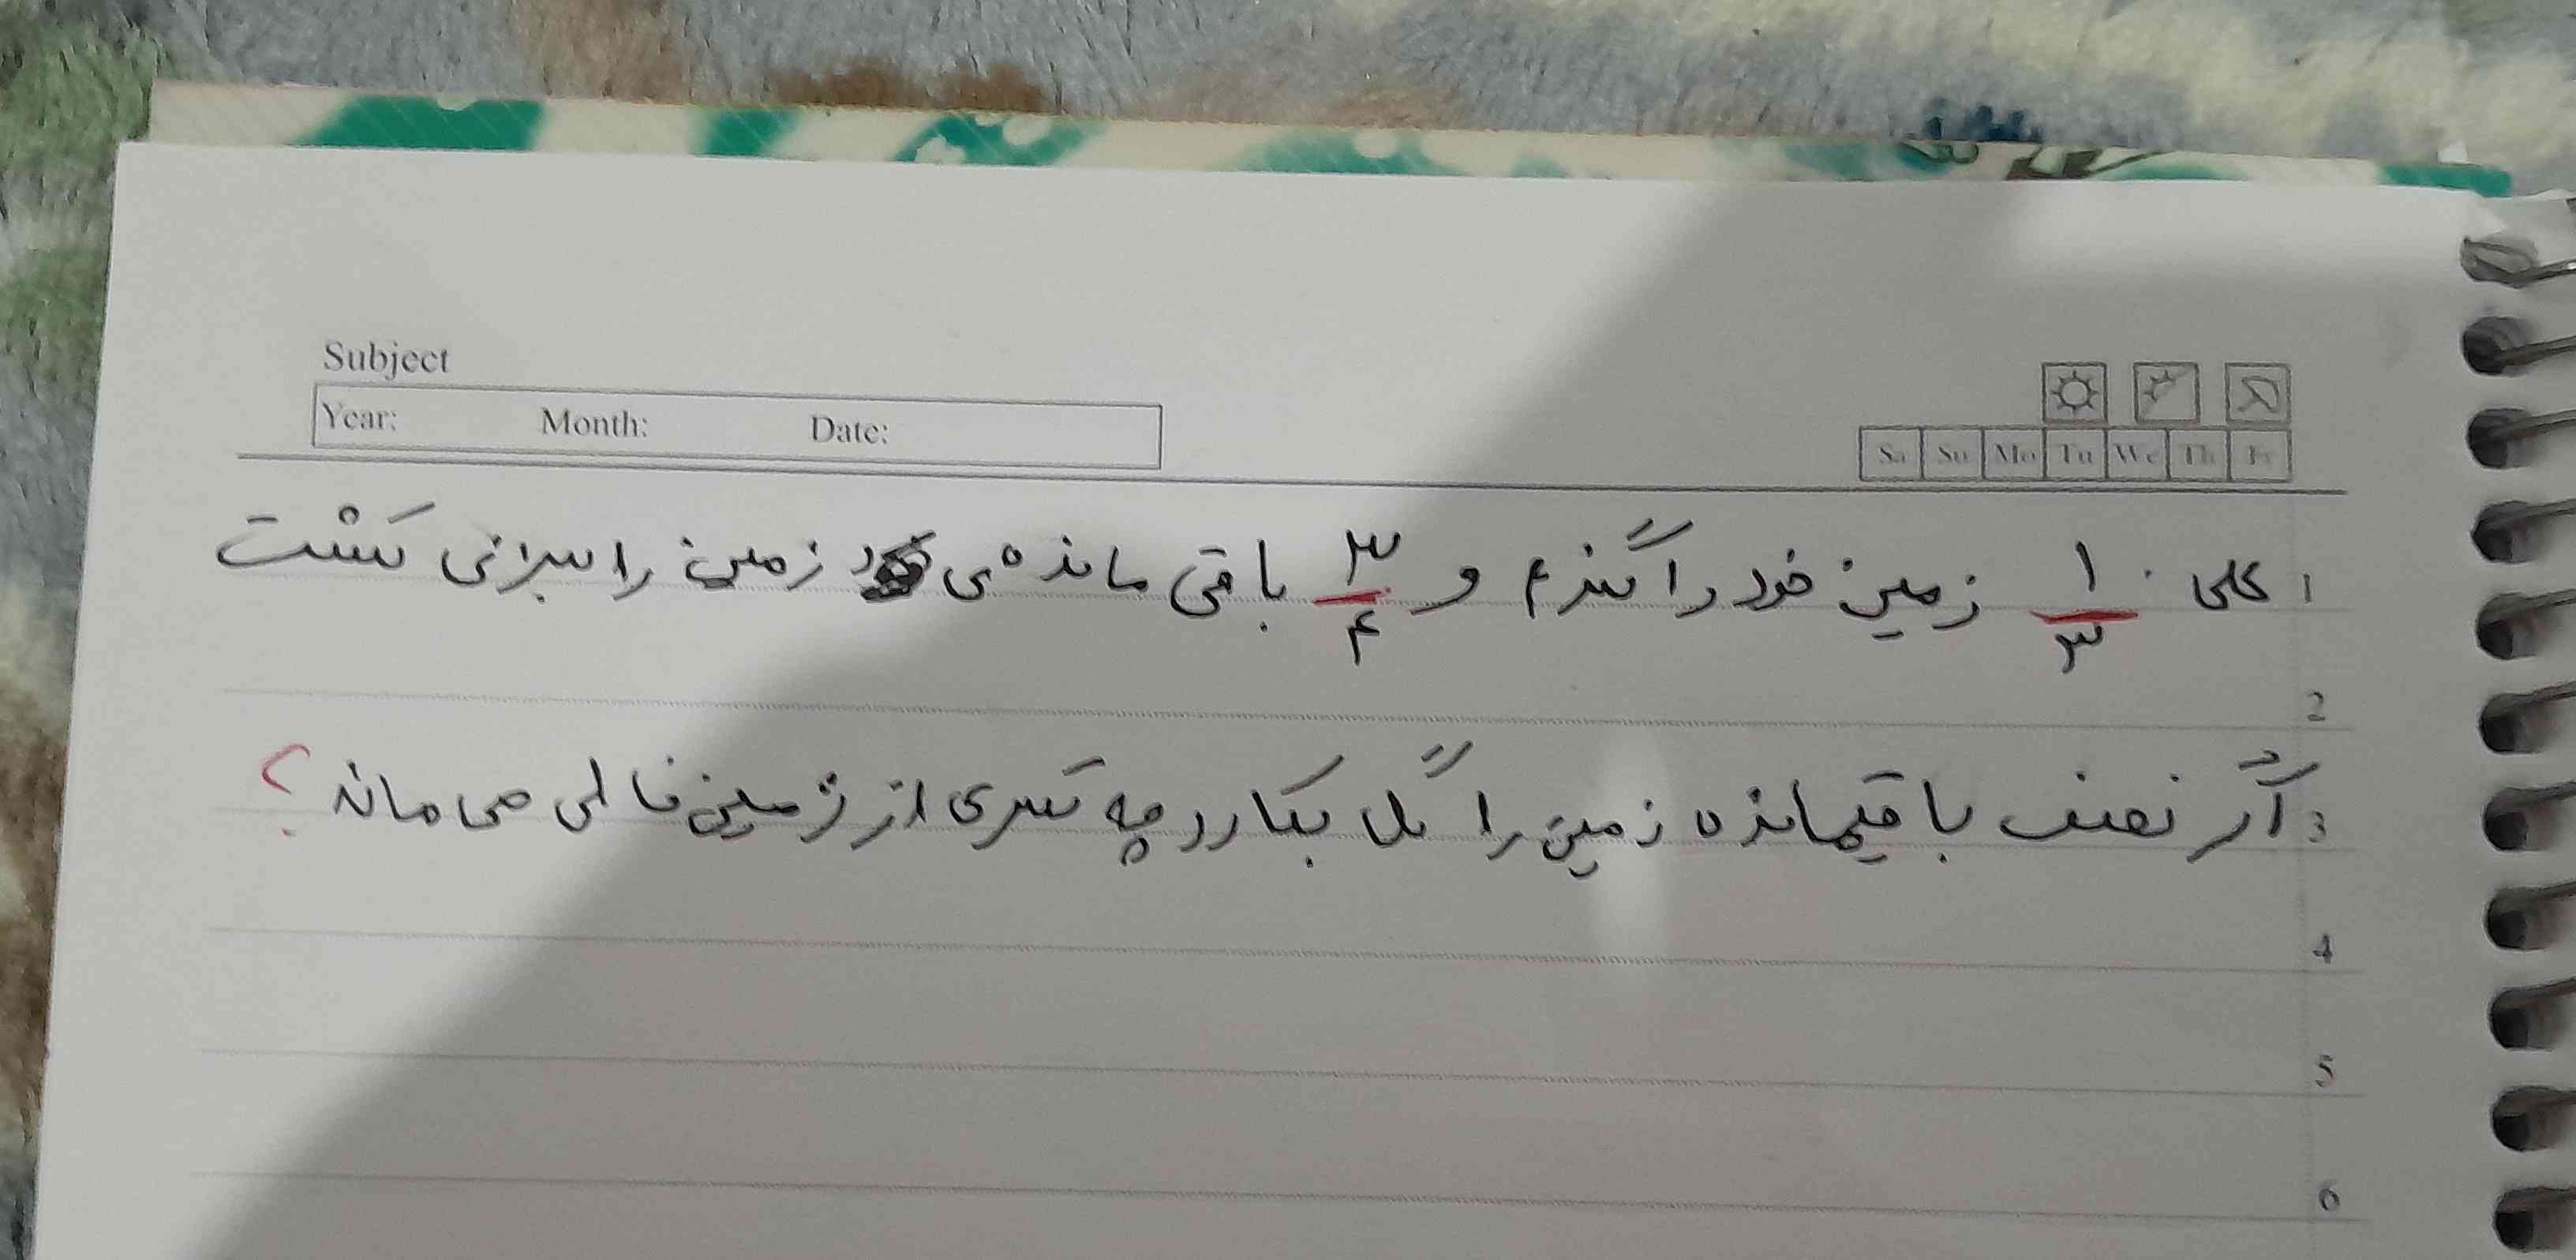 Subject
Year: Month: Date:
Sa Su Mo Tu We Th Fr
1 علی ۱/۳ زمین خود را گندم و ۳/۴ باقی مانده ی زمین را سبزی کشت
2
3 اگر نصف باقیمانده زمین را گل بکارد چه کسری از زمین خالی می ماند ؟
4
5
6